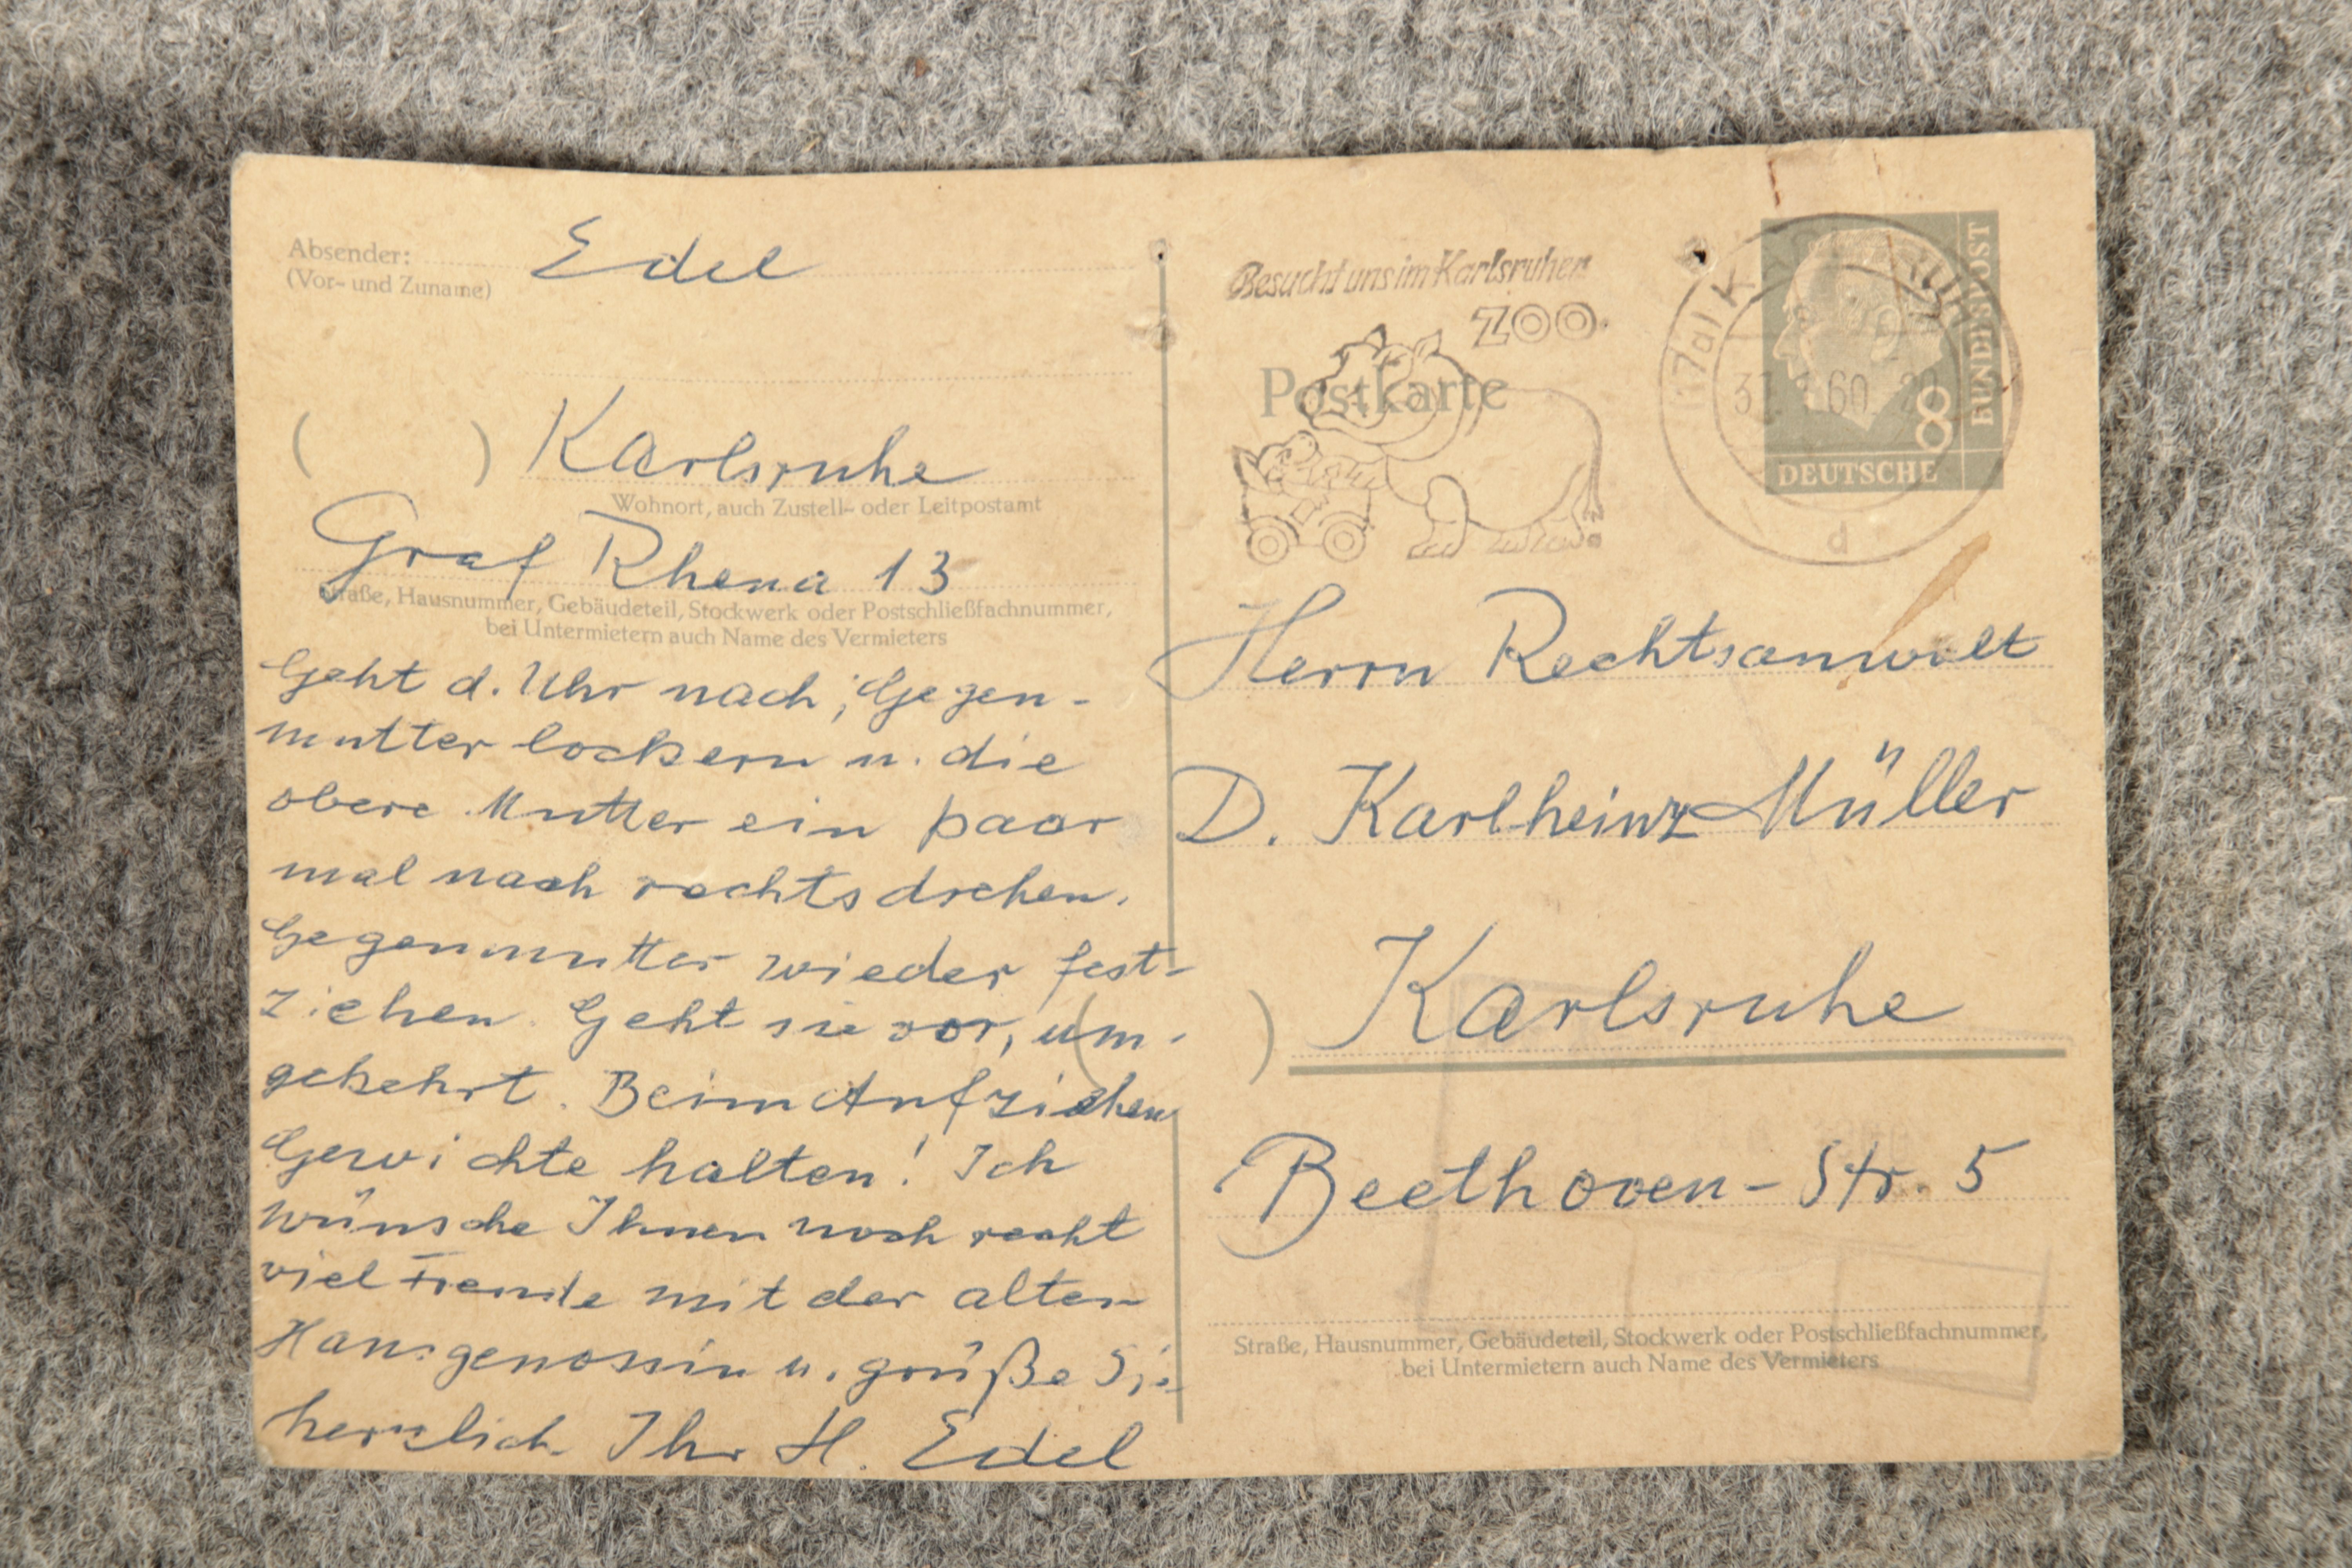 Absender:
(Vor- und Zuname)
Edel
( ) Karlsruhe
Wohnort, auch Zustell- oder Leitpostamt
Graf Rhena 13
Straße, Hausnummer, Gebäudeteil, Stockwerk oder Postschließfachnummer,
bei Untermietern auch Name des Vermieters
Geht d. Uhr nach; Gegen-
mutter lockern u. die
obere Mutter ein paar
mal nach rechts drehen.
Gegenmutter wieder fest-
ziehen. Geht sie vor, um-
gekehrt. Beim Aufziehen
Gewichte halten! Ich
wünsche Ihnen noch recht
viel Freude mit der alten
Hausgenossin u. grüße Sie
herzlich Ihr H. Edel
Besucht uns im Karlsruher
ZOO
Postkarte
17a KARLSRUHE
60
d
8
DEUTSCHE
BUNDESPOST
Herrn Rechtsanwalt
D. Karlheinz Müller
( ) Karlsruhe
Beethoven-Str. 5
Straße, Hausnummer, Gebäudeteil, Stockwerk oder Postschließfachnummer,
bei Untermietern auch Name des Vermieters